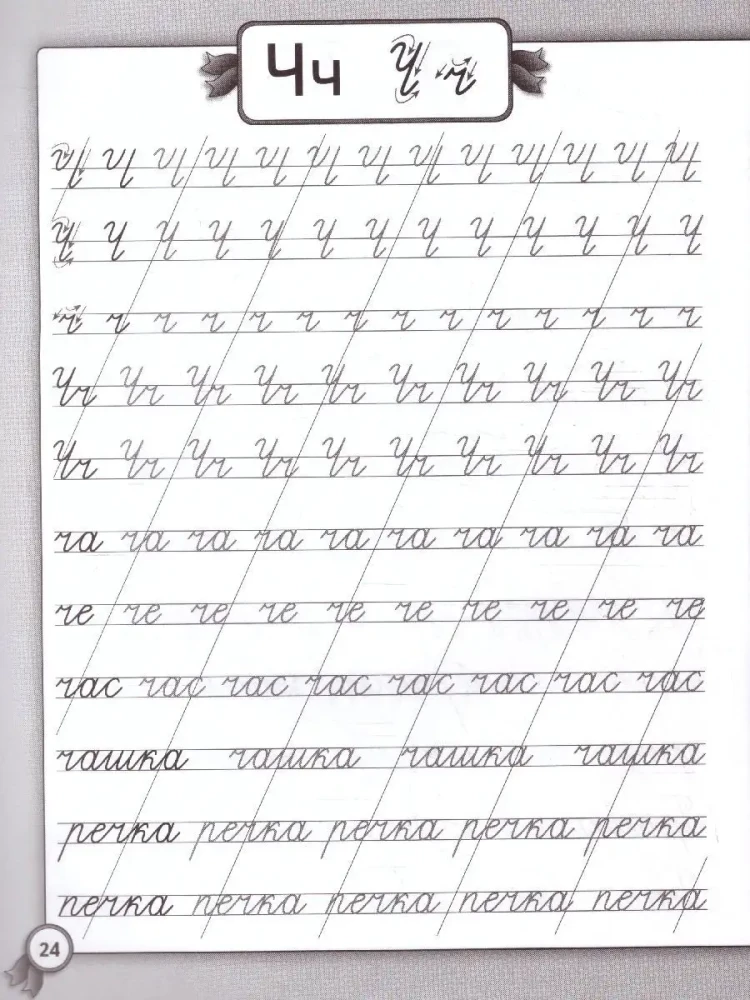 Чч Ч ч
Ч Ч Ч Ч Ч Ч Ч Ч Ч Ч Ч Ч Ч
Ч Ч Ч Ч Ч Ч Ч Ч Ч Ч Ч Ч Ч
ч ч ч ч ч ч ч ч ч ч ч ч ч ч
Чч Чч Чч Чч Чч Чч Чч Чч Чч Чч
Чч Чч Чч Чч Чч Чч Чч Чч Чч Чч
ча ча ча ча ча ча ча ча ча ча
че че че че че че че че че че
час час час час час час час час
чашка чашка чашка чашка
речка речка речка речка речка
печка печка печка печка печка
24